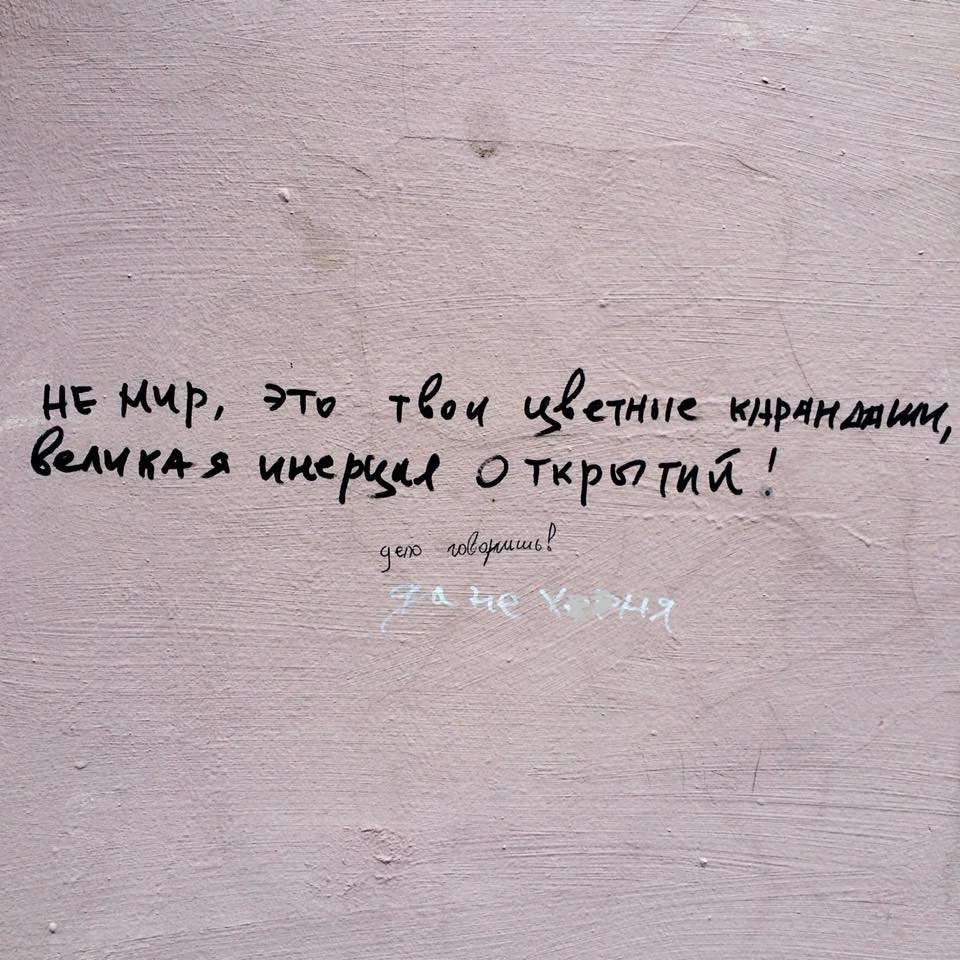 НЕ МИР, ЭТО твои цветные карандаши,
великая инерция открытий!
дело говоришь!
да не херня